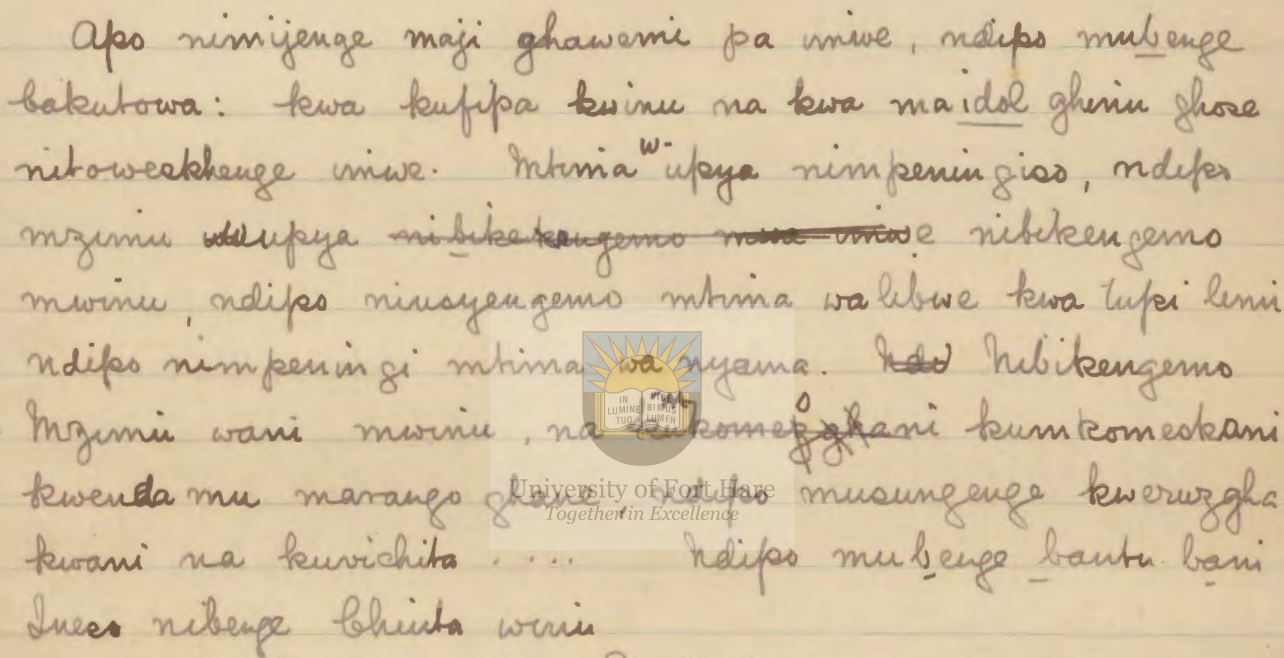 Apo nimijenge maji ghawemi pa imwe, ndipo mubenge
bakutowa: kwa kufipa kwinu na kwa maidol ghinu ghose
nitoweskhenge imwe. Mtima w-upya nimpeningiso, ndipo
mzimu upya nibikengemo
mwinu, ndipo niusyengemo mtima wa libwe kwa tupi linu
ndipo nimpeningi mtima wa nyama. Nibikengemo
Mzimu wani mwinu, na kumkomeskani
kwenda mu marango ghane, ndipo musungenge kweruzgha
kwani na kuvichita . . . . Ndipo mubenge bantu bani
Ineso nibenge Chiuta winu
IN LUMINE TUO VIDEBIMUS LUMEN
University of Fort Hare
Together in Excellence